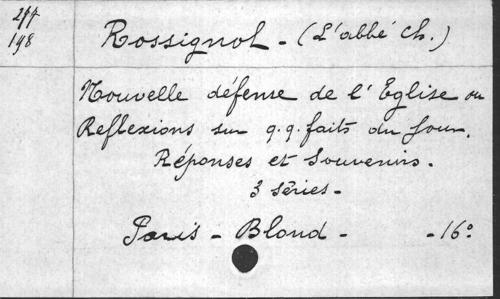 277
198
Rossignol - (L'abbé Ch.)
Nouvelle défense de l'Eglise ou
Reflexions sur q.q. faits du Jour.
Réponses et Souvenirs.
3 séries -
Paris - Bloud - - 16°